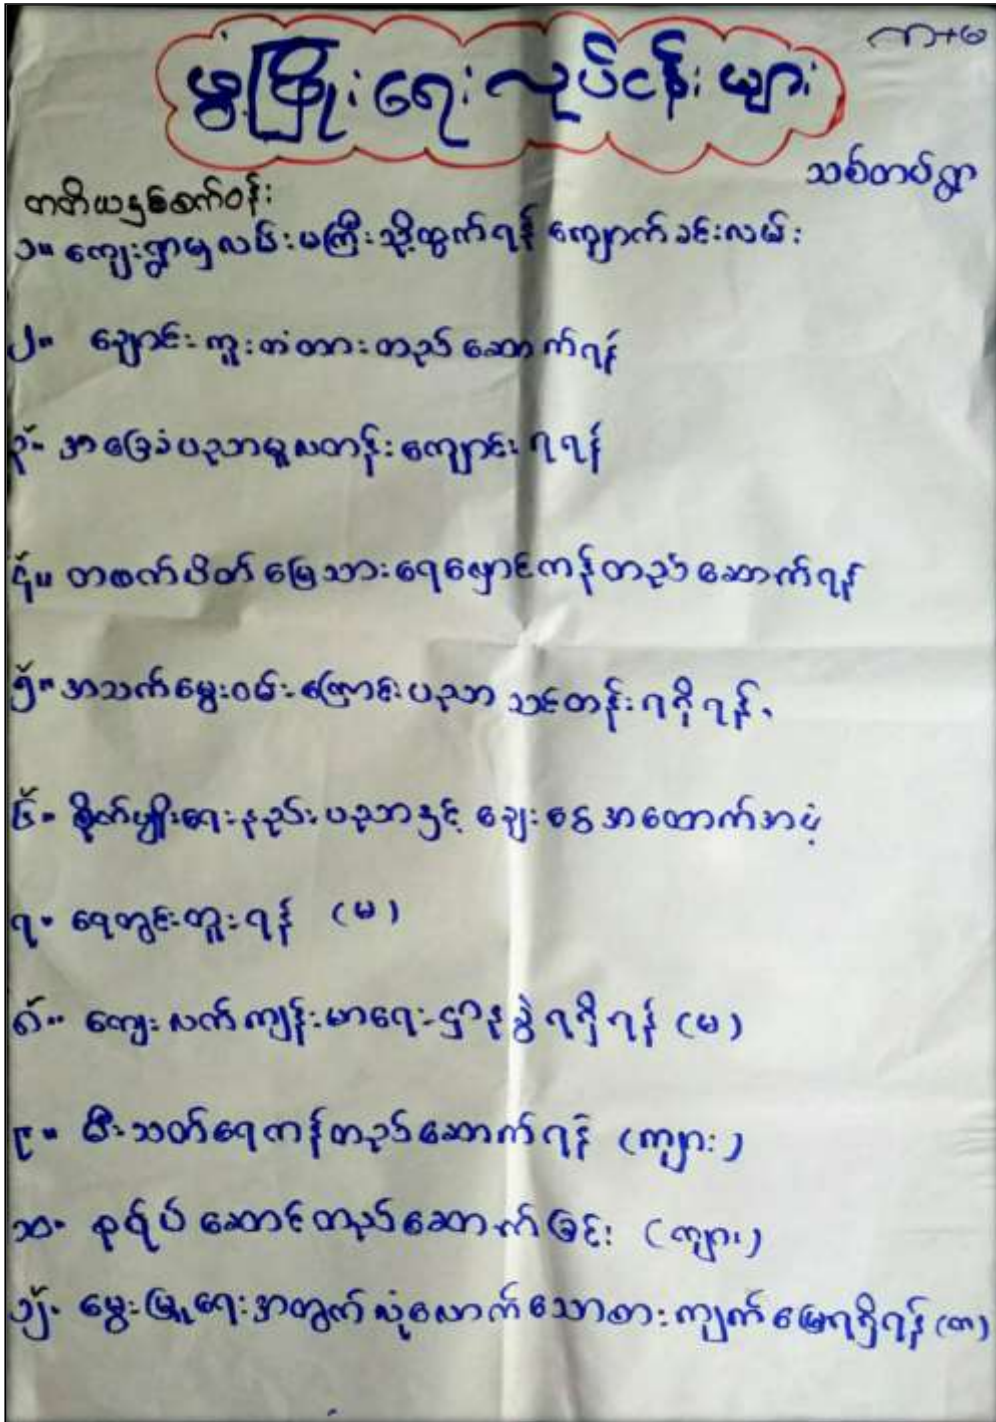 ကာ+မ
ဖွံ့ဖြိုးရေးလုပ်ငန်းများ
သစ်တပ်ရွာ
တတိယနှစ်စက်ဝန်း
၁။ ကျေးရွာမှလမ်းမကြီးသို့ထွက်ရန် ကျောက်ခင်းလမ်း
၂။ ချောင်းကူးတံတားတည်ဆောက်ရန်
၃။ အခြေခံပညာမူလတန်းကျောင်းရရန်
၄။ တစက်ပိတ်မြေသားရေလှောင်ကန်တည်ဆောက်ရန်
၅။ အသက်မွေးဝမ်းကြောင်းပညာသင်တန်းရရှိရန်၊
၆။ စိုက်ပျိုးရေးနည်းပညာနှင့် ချေးငွေအထောက်အပံ့
၇။ ရေတွင်းတူးရန် (မ)
၈။ ကျေးလက်ကျန်းမာရေးဌာနခွဲရရှိရန် (မ)
၉။ မီးသတ်ရေကန်တည်ဆောက်ရန် (ကျား)
၁၀။ ဇရပ်ဆောင်တည်ဆောက်ခြင်း (ကျား)
၁၂။ မွေးမြူရေးအတွက်လုံလောက်သောစားကျက်မြေရရှိရန် (ကာ)